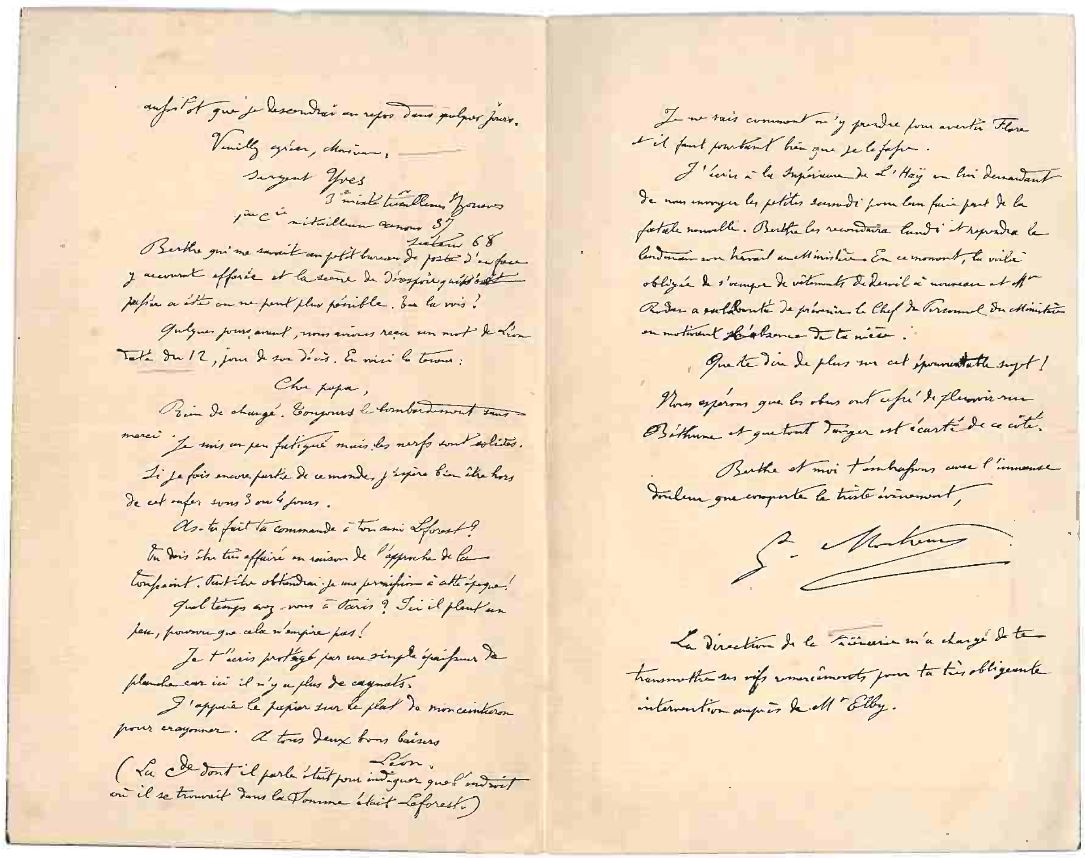 aussitôt que je descendrai au repos dans quelques jours.
Veuillez agréer, Monsieur,
Sergent Yves
3e mixte tirailleurs Zouaves
1ère Cie canons 37
Secteur 68
Berthe qui me savait au petit bureau de poste d'en face
y accourut affolée et la scène de désespoir qui s'est
passée a été on ne peut plus pénible. Tu la vois ?
Quelques jours avant, nous avions reçu un mot de Léon
daté du 12, jour de son décès. En voici la teneur :
Cher papa,
Rien de changé. Toujours le bombardement sans
merci. Je suis un peu fatigué mais les nerfs sont solides.
Si je fais encore partie de ce monde, j'espère bien être hors
de cet enfer sous 3 ou 4 jours.
As-tu fait ta commande à ton ami Leforest ?
Tu dois être très affairé en raison de l'approche de la
Toussaint. Peut-être obtiendrai-je une permission à cette époque !
Quel temps avez-vous à Paris ? Ici il pleut un
peu, pourvu que cela n'empire pas !
Je t'écris protégé par une simple épaisseur de
planche car ici il n'y a plus de cagnats.
J'appuie le papier sur le plat de mon ceinturon
pour crayonner. A tous deux bons baisers
Léon.
(La Cde dont il parle était pour indiquer que l'endroit
où il se trouvait dans la Somme était Leforest.)
Je ne sais comment m'y prendre pour avertir Flore
et il faut pourtant bien que je le fasse.
J'écris à la Supérieure de L'Haÿ en lui demandant
de nous envoyer les petites samedi pour leur faire part de la
fatale nouvelle. Berthe les reconduira lundi et reprendra le
lendemain son travail au Ministère. En ce moment, la voilà
obligée de s'occuper de vêtements de deuil à nouveau et Mr
a eu la bonté de prévenir le Chef du Personnel du Ministère
en motivant l'absence de ta nièce.
Que te dire de plus sur cet épouvantable sujet !
Nous espérons que les obus ont cessé de pleuvoir sur
Béthune et que tout danger est écarté de ce côté.
Berthe et moi t'embrassons avec l'immense
douleur que comporte le triste évènement,
La direction de la m'a chargé de te
transmettre ses vifs remerciements pour ta très obligeante
intervention auprès de Mr Elby.